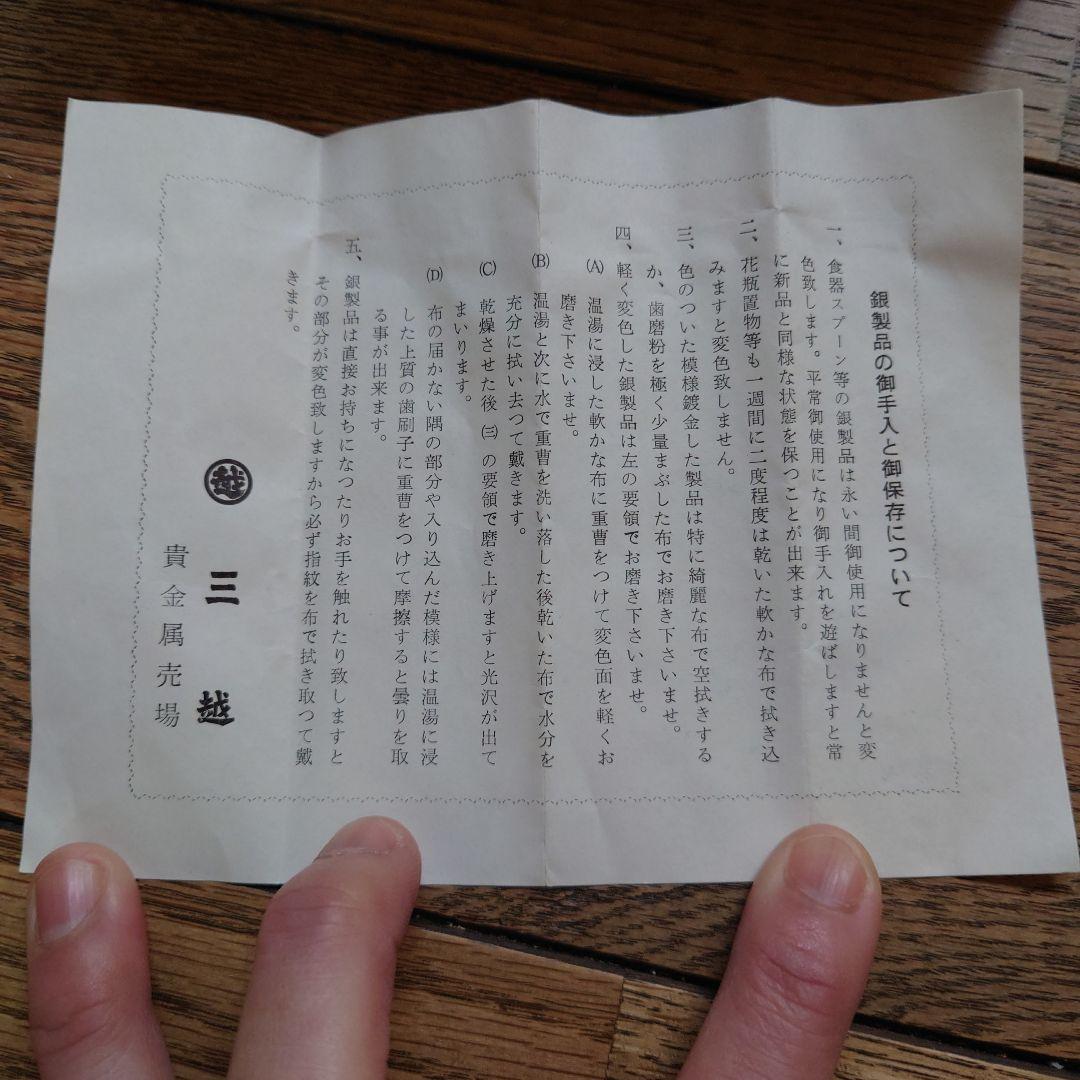 銀製品の御手入と御保存について
一、食器スプーン等の銀製品は永い間御使用になりませんと変
色致します。平常御使用になり御手入れを遊ばしますと常
に新品と同様な状態を保つことが出来ます。
二、花瓶置物等も一週間に二度程度は乾いた軟かな布で拭き込
みますと変色致しません。
三、色のついた模様鍍金した製品は特に綺麗な布で空拭きする
か、歯磨粉を極く少量まぶした布でお磨き下さいませ。
四、軽く変色した銀製品は左の要領でお磨き下さいませ。
(A) 温湯に浸した軟かな布に重曹をつけて変色面を軽くお
磨き下さいませ。
(B) 温湯と次に水で重曹を洗い落した後乾いた布で水分を
充分に拭い去つて戴きます。
(C) 乾燥させた後 ㈢ の要領で磨き上げますと光沢が出て
まいります。
(D) 布の届かない隅の部分や入り込んだ模様には温湯に浸
した上質の歯刷子に重曹をつけて摩擦すると曇りを取
る事が出来ます。
五、銀製品は直接お持ちになつたりお手を触れたり致しますと
その部分が変色致しますから必ず指紋を布で拭き取つて戴
きます。
越 三越
貴金属売場